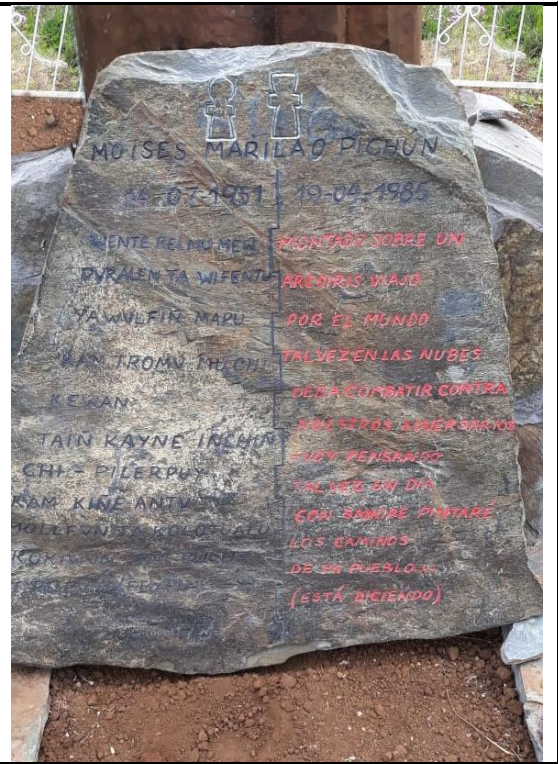 MOISES MARILAO PICHÚN
19-04-1985
WENTE RELMU MEW
PURALEN TA WIFENTU
YAWULFIÑ MAPU
KAM TROMU MU CHI
KEWAN
TAIÑ KAYNE INCHIN
CHI - PILERPUY
KAM KIÑE ANTU
MONTADO SOBRE UN
ARCOIRIS VIAJO
POR EL MUNDO
TALVEZ EN LAS NUBES
DEBA COMBATIR CONTRA
NUESTROS ADVERSARIOS
VOY PENSANDO
TALVEZ UN DIA
CON SANGRE PINTARÉ
LOS CAMINOS
DE MI PUEBLO...
(ESTÁ DICIENDO)